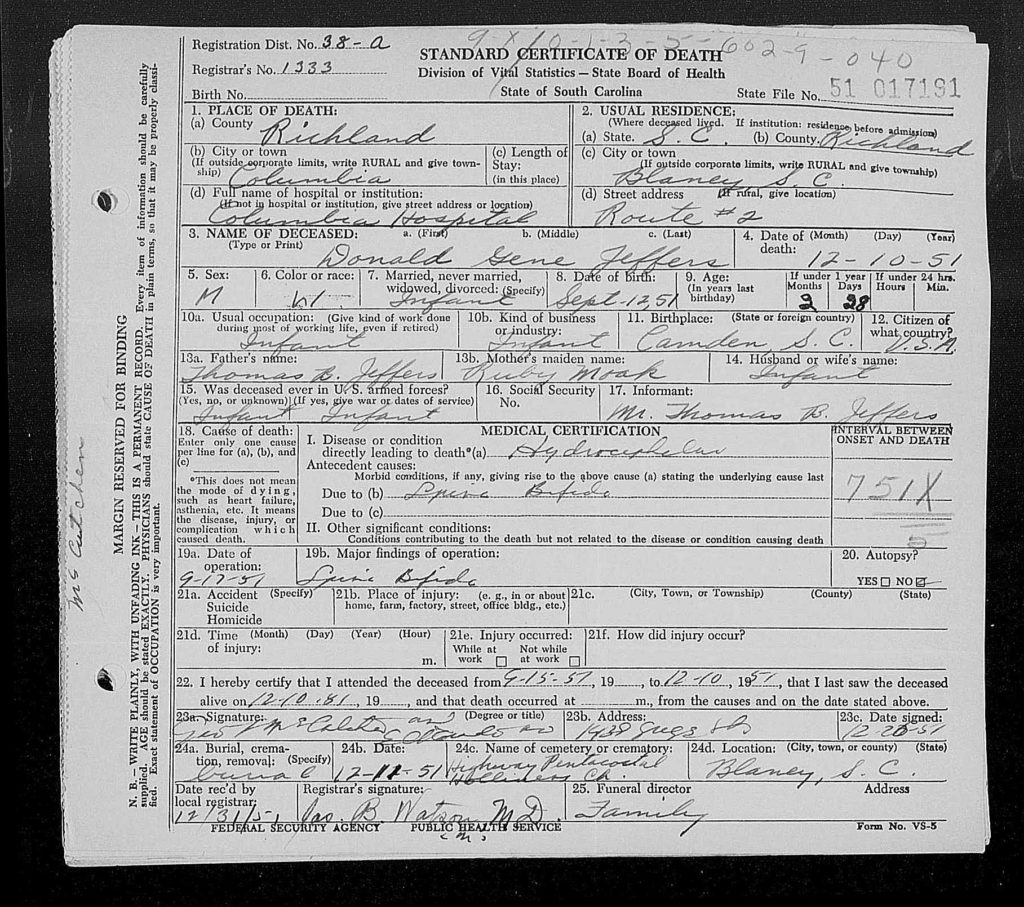 Registration Dist. No. 38-a
Registrar's No. 1333
Birth No.
9-X/0-1-3-5-602-9-040
STANDARD CERTIFICATE OF DEATH
Division of Vital Statistics — State Board of Health
State of South Carolina
State File No. 51 017191
1. PLACE OF DEATH:
(a) County Richland
(b) City or town
(If outside corporate limits, write RURAL and give township)
Columbia
(c) Length of Stay:
(in this place)
(d) Full name of hospital or institution:
(If not in hospital or institution, give street address or location)
Columbia Hospital
2. USUAL RESIDENCE:
(Where deceased lived. If institution: residence before admission)
(a) State. S. C. (b) County. Richland
(c) City or town
(If outside corporate limits, write RURAL and give township)
Blaney S C
(d) Street address (If rural, give location)
Route #2
3. NAME OF DECEASED: a. (First) b. (Middle) c. (Last)
(Type or Print)
Donald Gene Jeffers
4. Date of death: (Month) (Day) (Year)
12-10-51
5. Sex: M
6. Color or race: W
7. Married, never married, widowed, divorced: (Specify)
Infant
8. Date of birth:
Sept-12,51
9. Age:
(In years last birthday)
If under 1 year
Months Days
2 28
If under 24 hrs.
Hours Min.
10a. Usual occupation: (Give kind of work done during most of working life, even if retired)
Infant
10b. Kind of business or industry:
Infant
11. Birthplace: (State or foreign country)
Camden, S. C.
12. Citizen of what country?
U.S.A.
13a. Father's name:
Thomas B. Jeffers
13b. Mother's maiden name:
Ruby Moak
14. Husband or wife's name:
Infant
15. Was deceased ever in U. S. armed forces?
(Yes, no, or unknown) (If yes, give war or dates of service)
Infant Infant
16. Social Security No.
17. Informant:
Mr. Thomas B. Jeffers
18. Cause of death:
Enter only one cause per line for (a), (b), and (c)
*This does not mean the mode of dying, such as heart failure, asthenia, etc. It means the disease, injury, or complication which caused death.
MEDICAL CERTIFICATION
INTERVAL BETWEEN ONSET AND DEATH
I. Disease or condition directly leading to death*(a) Hydrocephalus
Antecedent causes:
Morbid conditions, if any, giving rise to the above cause (a) stating the underlying cause last
Due to (b) Spina Bifida
751X
Due to (c)
II. Other significant conditions:
Conditions contributing to the death but not related to the disease or condition causing death
19a. Date of operation:
9-17-51
19b. Major findings of operation:
Spina Bifida
20. Autopsy?
YES ☐ NO ☑
21a. Accident (Specify)
Suicide
Homicide
21b. Place of injury: (e. g., in or about home, farm, factory, street, office bldg., etc.)
21c. (City, Town, or Township) (County) (State)
21d. Time (Month) (Day) (Year) (Hour)
of injury: m.
21e. Injury occurred:
While at work ☐ Not while at work ☐
21f. How did injury occur?
22. I hereby certify that I attended the deceased from 9-15-51, 19, to 12-10, 1951, that I last saw the deceased
alive on 12-10-51, 19, and that death occurred at m., from the causes and on the date stated above.
23a. Signature: (Degree or title)
23b. Address:
23c. Date signed:
24a. Burial, cremation, removal: (Specify)
burial
24b. Date:
12-11-51
24c. Name of cemetery or crematory:
Highway Pentacostal
Holliness Ch.
24d. Location: (City, town, or county) (State)
Blaney, S. C.
Date rec'd by local registrar:
12/31/51
Registrar's signature:
Jas. B. Watson, M.D.
(m.)
25. Funeral director Address
Family
FEDERAL SECURITY AGENCY PUBLIC HEALTH SERVICE
Form No. VS-5
MARGIN RESERVED FOR BINDING
N. B. — WRITE PLAINLY, WITH UNFADING INK — THIS IS A PERMANENT RECORD. Every item of information should be carefully
supplied. AGE should be stated EXACTLY. PHYSICIANS should state CAUSE OF DEATH in plain terms, so that it may be properly classi-
fied. Exact statement of OCCUPATION is very important.
McCutchen